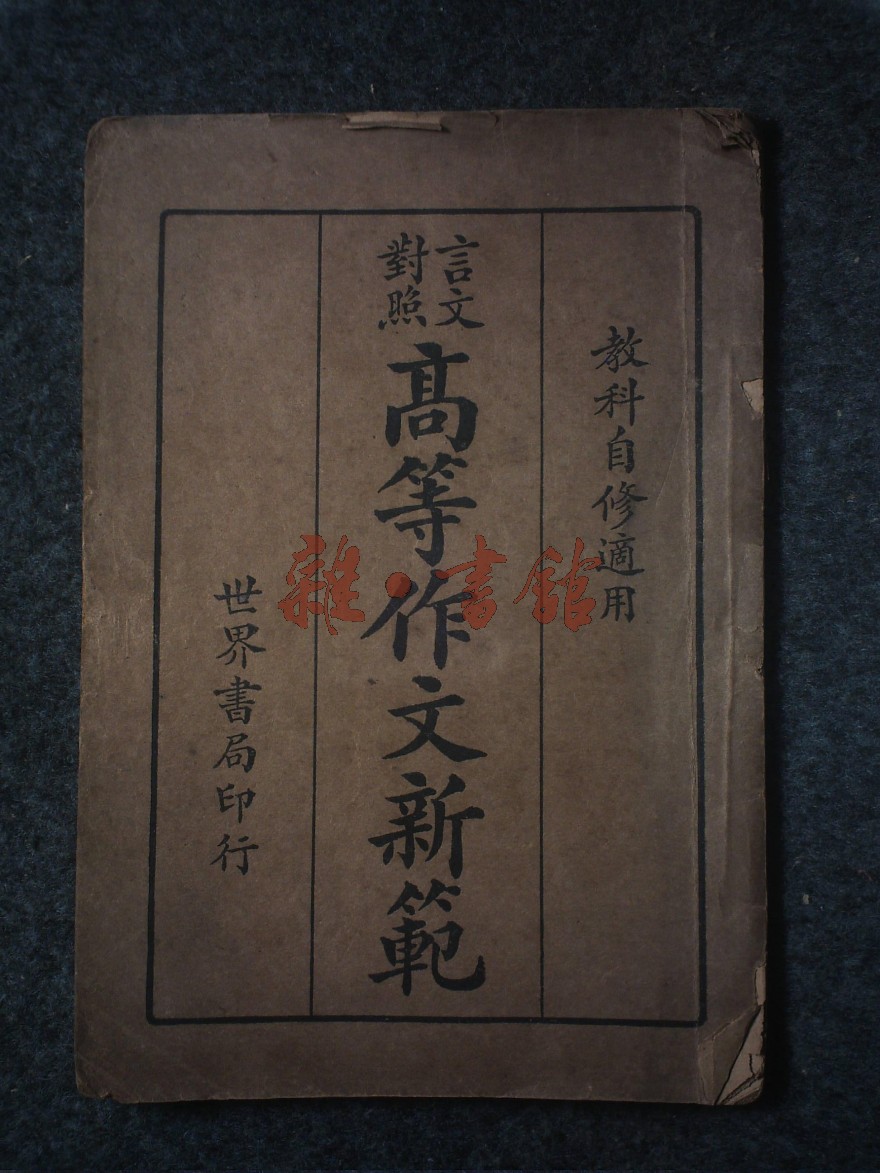 教科自修適用
言文
對照
高等作文新範
世界書局印行
雜·書館